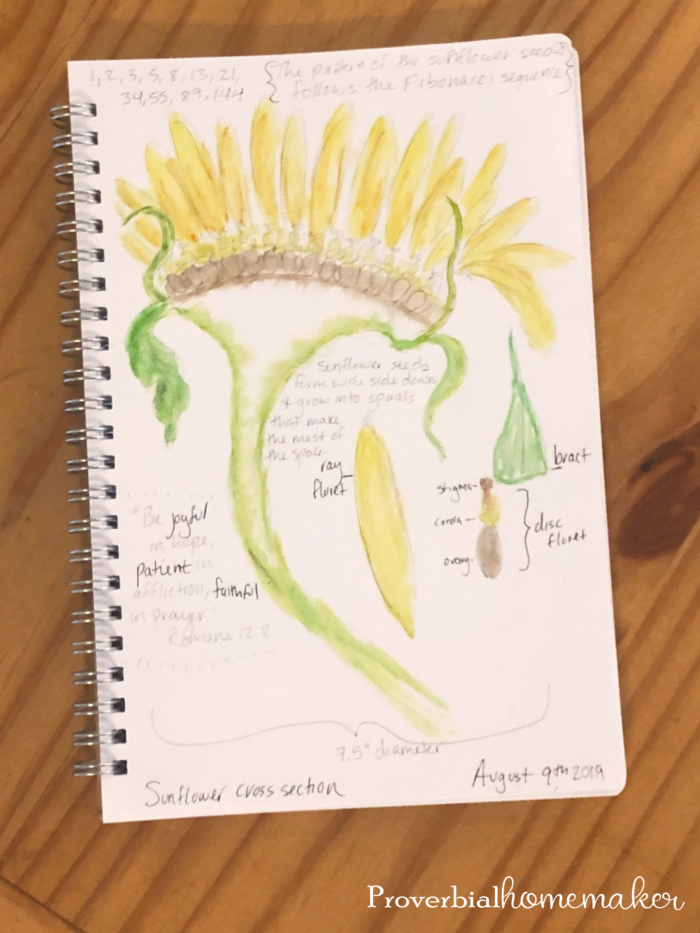 1, 2, 3, 5, 8, 13, 21,
34, 55, 89, 144
{The pattern of the sunflower seeds
follows the Fibonacci sequence}
Sunflower seeds
form wide side down
& grow into spirals
that make
the most of
the space.
ray
floret
bract
stigma
corola
ovary
disc
floret
"Be joyful
in hope,
patient in
affliction, faithful
in prayer"
Romans 12:12
7.5" diameter
Sunflower cross section
August 9th, 2019
Proverbialhomemaker